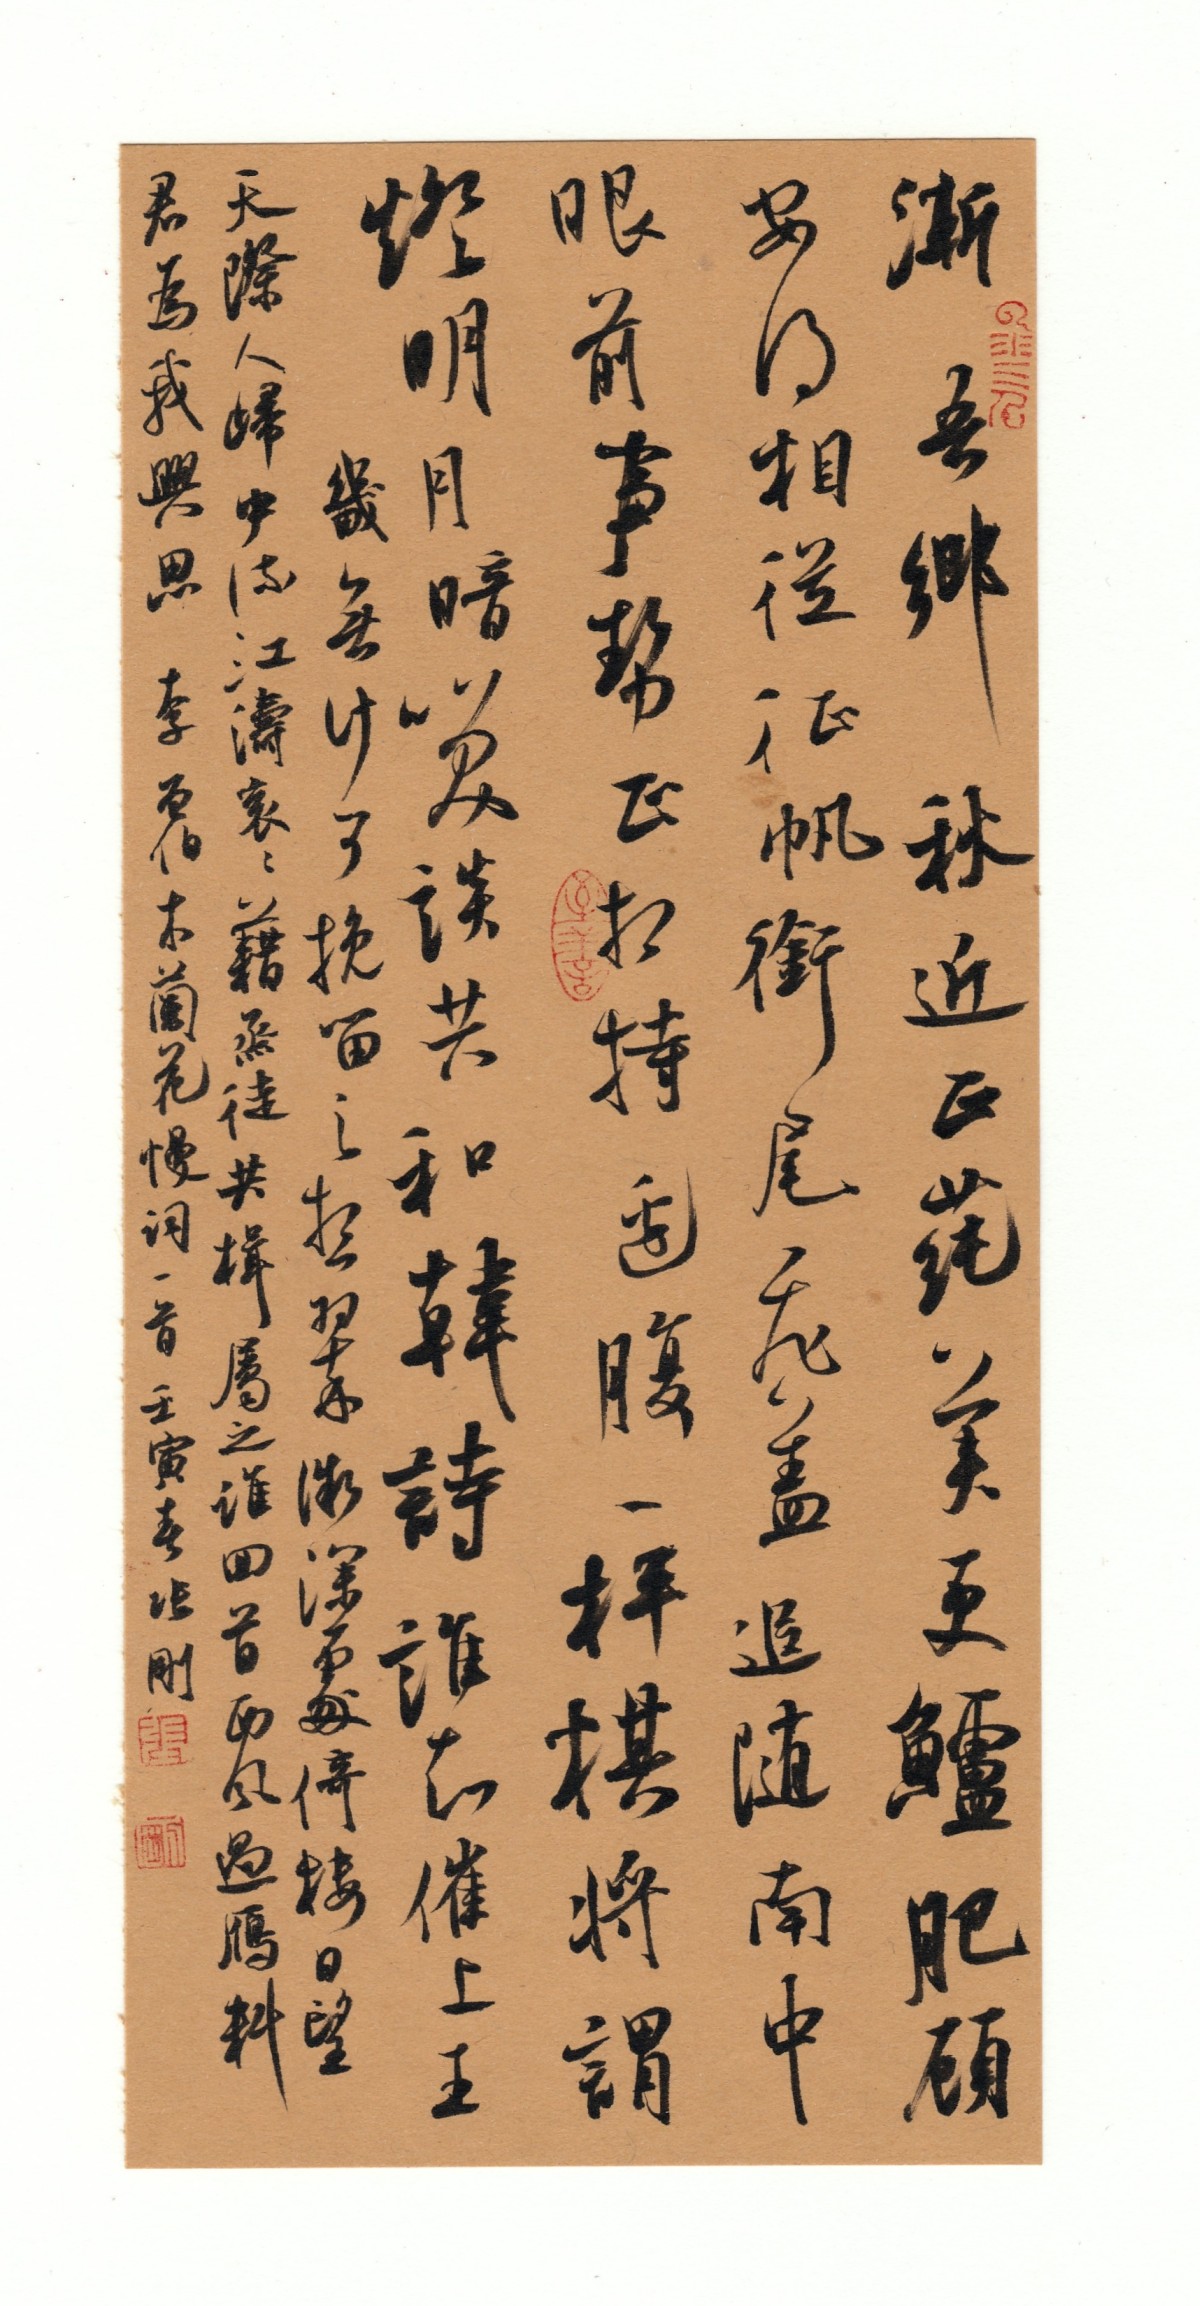 漸吾鄉秋近正蒓美更鱸肥顧
安得相從征帆銜尾飛蓋追隨南中
眼前事勢正相持邊腹一枰棋將謂
燈明月暗笑談共和韓詩誰知催上王
幾無計可挽留之想翠微深處倚樓日望
天際人歸中流江濤袞〻藉烝徒共楫屬之誰回首西風過鴈料
君為我興思 李曾伯木蘭花慢詞一首壬寅春張剛